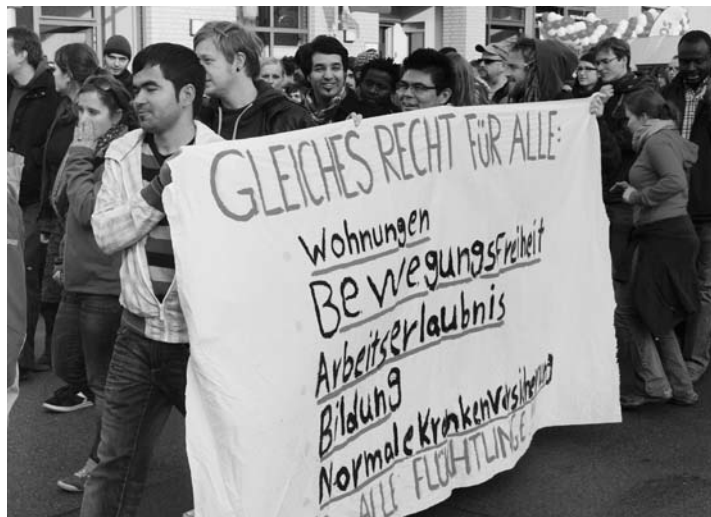 GLEICHES RECHT FÜR ALLE:
Wohnungen
Bewegungsfreiheit
Arbeitserlaubnis
Bildung
Normale Krankenversicherung
ALLE FLÜCHTLINGE